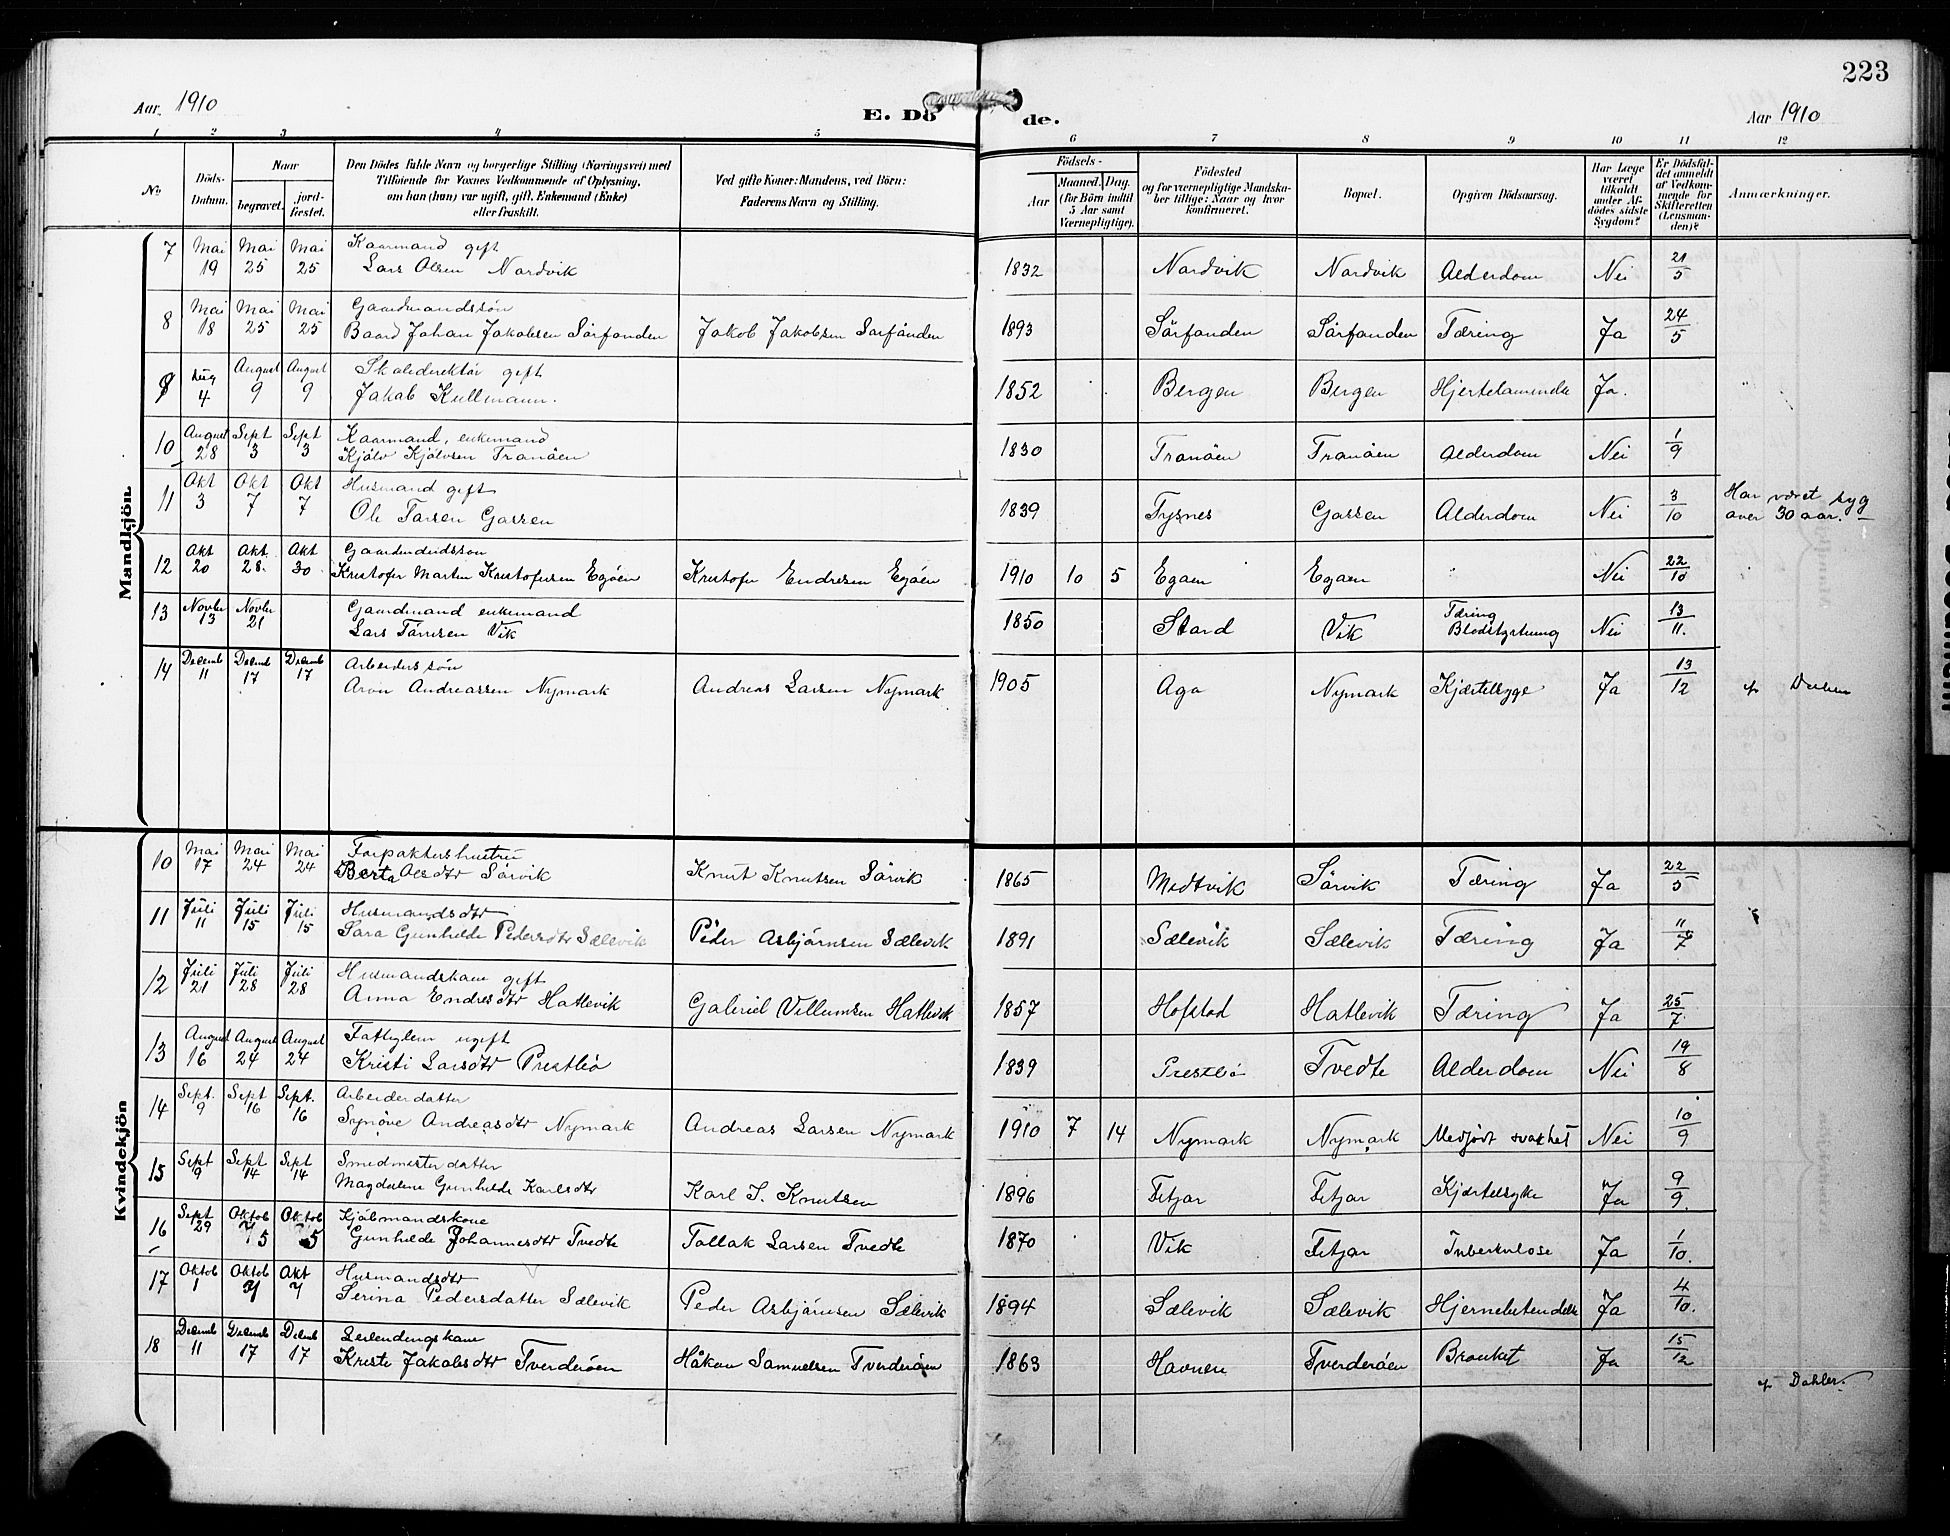 223
Aar 1910 E. Dö de. Aar 1910
1 2 3 4 5 6 7 8 9 10 11 12
No
Döds-Datum.
Naar
begravet.
jord-fæstet.
Den Dödes fulde Navn og borgerlige Stilling (Næringsvei) med
Tilföiende for Voxnes Vedkommende af Oplysning,
om han (hun) var ugift, gift, Enkemand (Enke)
eller fraskilt.
Ved gifte Koner: Mandens, ved Börn:
Faderens Navn og Stilling.
Födsels-
Aar
Maaned. Dag.
(for Börn indtil
5 Aar samt
Værnepligtige).
Födested
og for værnepligtige Mandska-
ber tillige: Naar og hvor
konfirmeret.
Bopæl.
Opgiven Dödsaarsag.
Har Læge
været
tilkaldt
under Af-
dödes sidste
Sygdom?
Er Dödsfal-
det anmeldt
af Vedkom-
mende for
Skifteretten
(Lensman-
den)?
Anmærkninger.
Mandkjön.
7 Mai 19 Mai 25 Mai 25 Kaarmand gift
Lars Olsen Nordvik 1832 Nordvik Nordvik Alderdom Nei 21/5
8 Mai 18 Mai 25 Mai 25 Gaardmandssön
Baard Johan Jakobsen Sörfonden Jakob Jakobsen Sorfånden 1893 Sörfonden Sörfonden Tæring Ja 24/5
9 Aug 4 August 9 August 9 Skoledirektör gift
Jakob Kullmann. 1852 Bergen Bergen Hjertelammelse Ja.
10 August 28 Sept 3 Sept 3 Kaarmand, enkemand
Kjölv Kjölvsen Tranöen 1830 Tranöen Tranöen Alderdom Nei 1/9
11 Okt 3 Okt 7 Okt 7 Husmand gift
Ole Larsen Gassen 1839 Tysnes Gassen Alderdom Nei 3/10 Har været syg
over 30 aar.
12 Okt 20 Okt. 28. Okt 30
Kristofer Martin Kristofersen Egöen Kristofer Endresen Egöen 1910 10 5 Egøen Egøen Nei 22/10
13 Novbr 13 Novbr 21 Gaardmand enkemand
Lars Törrisen Vik 1850 Stord Vik Tæring
Blodstyrtning Nei 13/11.
14 Decemb 11 Decemb 17 Decemb 17 Arbeiders sön
Aron Andreassen Nymark Andreas Larsen Nymark 1905 Aga Nymark Kjærtelsyge Ja 13/12
Kvindekjön
10 Mai 17 Mai 24 Mai 24 Forpaktershustru
Berta Olsdtr Sörvik Knut Knutsen Sörvik 1865 Medtvik Sörvik Tæring Ja 22/5
11 Juli 11 Juli 15 Juli 15 Husmandsdtr
Sara Gunhilde Pedersdtr Sælevik Peder Asbjörnsen Sælevik 1891 Sælevik Sælevik Tæring Ja 11/7
12 Juli 21 Juli 28 Juli 28 Husmandskone gift
Anna Endresdtr Hatlevik Gabriel Villumsen Hatlevik 1857 Hofstad Hatlevik Tæring Ja 25/7
13 August 16 August 24 August 24 Fattiglem ugift
Kristi Larsdtr Prestbö 1839 Prestbö Tvedte Alderdom Nei 19/8
14 Sept. 9 Sept 16 Sept. 16 Arbeiderdatter
Synöve Andreasdtr Nymark Andreas Larsen Nymark 1910 7 14 Nymark Nymark Medfödt svakhet Nei 10/9
15 Sept 9 Sept 14 Sept 14 Smedmesterdatter
Magdalene Gunhilde Karlsdtr Karl J. Knutsen 1896 Fitjar Fitjar Kjertelsyke Ja 9/9.
16 Sept 29 Oktob 5 Oktob 5 Kjöbmandskone
Gunhilde Johannesdtr Tvedte Tollak Larsen Tvedte 1870 Vik Fitjar Tuberkulose Ja 1/10.
17 Oktob 1 Oktob 7 Okt 7 Husmandsdtr
Serina Pedersdatter Sælevik Peder Asbjörnsen Sælevik 1894 Sælevik Sælevik Hjernebetendelse Ja 4/10.
18 Decemb 11 Decemb 17 Decmb 17 Leilendingskone
Kristi Jakobsdtr Tverderöen Håkon Samuelsen Tverderöen 1863 Havnen Tverderöen Bronkit Ja 15/12
Dahler.